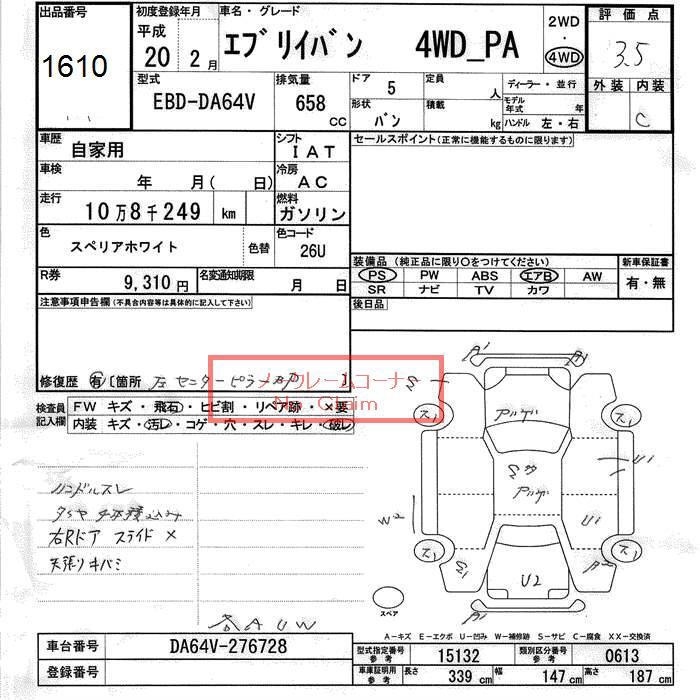 出品番号
1610
初度登録年月
平成
20 年 2 月
車名・グレード
エブリイバン 4WD_PA
2WD
・
4WD
評価点
3.5
外装 内装
C
型式
EBD-DA64V
排気量
658 CC
ドア 5
定員 人
形状 バン
積載 kg
ディーラー・並行
モデル年式 年
ハンドル 左・右
車歴 自家用
シフト IAT
車検 年 月( 日)
冷房 AC
走行 10万8千249 km
燃料 ガソリン
色 スペリアホワイト 色替
色コード 26U
R券 9,310円
名変通知期限 月 日
セールスポイント(正常に機能するものに限ります)
装備品(純正品に限り○をつけてください)
PS PW ABS エアB AW
SR ナビ TV カワ
新車保証書
有・無
後日品
注意事項申告欄(不具合内容等は具体的に記入して下さい)
修復歴 有〔箇所 左センターピラー 〕
ノークレームコーナー
No Claim
検査員記入欄
FW キズ・飛石・ヒビ割・リペア跡・×要
内装 キズ・汚レ・コゲ・穴・スレ・キレ・破レ
ハンドルスレ
右Rドア スライド ×
天張リキバミ
各AUW
A1
A1
ス1
ス1
アルゲ
アルゲ
U1
W2
U1
ス1
ス1
S1
A2
U2
スペア
A-キズ E-エクボ U-凹み W-補修跡 S-サビ C-腐食 XX-交換済
車台番号 DA64V-276728
登録番号
型式指定番号 参考 15132
類別区分番号 参考 0613
車庫証明用 参考 長さ 339 cm 幅 147 cm 高さ 187 cm